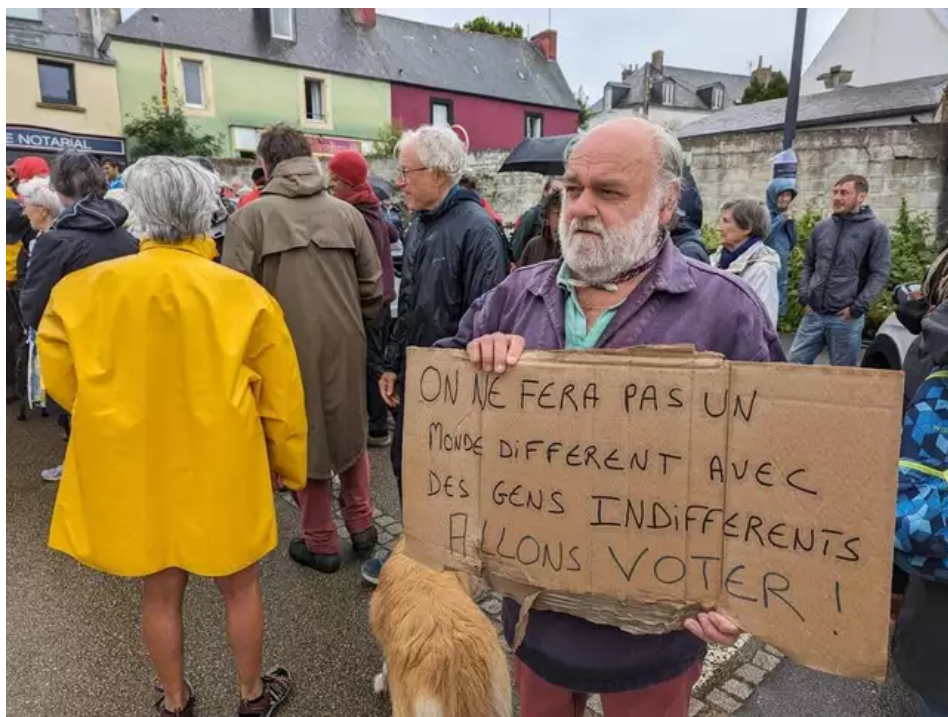 E NOTARIAL
ON NE FERA PAS UN
MONDE DIFFERENT AVEC
DES GENS INDIFFERENTS
ALLONS VOTER !